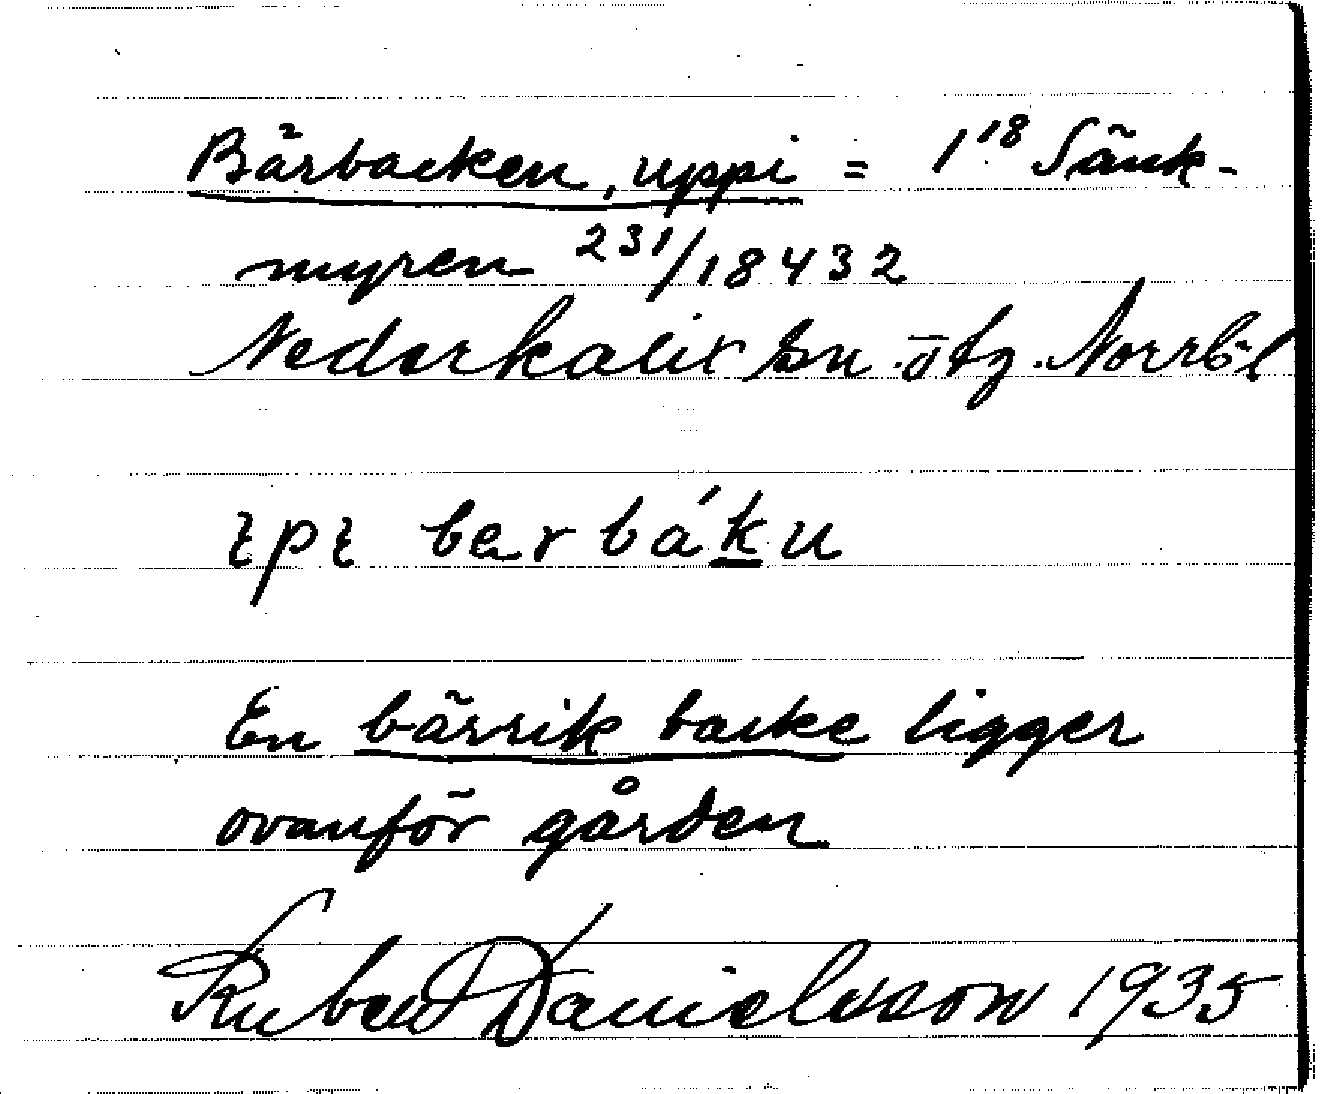 Bärbacken, uppi = 1¹⁸ Sänk-
myren ²³¹/18432
Nederkalix sn. ötg. Norrb.l
 berbáku
En bärrik backe ligger
ovanför gården
Ruben Danielsson 1935